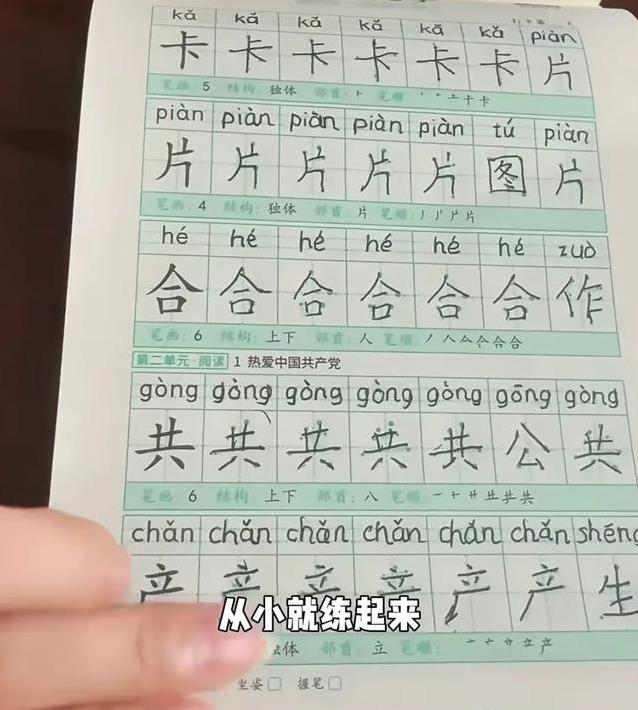 kǎ kǎ kǎ kǎ kǎ kǎ piàn
卡 卡 卡 卡 卡 卡 片
笔画: 5 结构: 独体 部首: 卜 笔顺: 丨 卜 上 卡 卡
piàn piàn piàn piàn piàn tú piàn
片 片 片 片 片 图 片
笔画: 4 结构: 独体 部首: 片 笔顺: 丿 丿丨 片 片
hé hé hé hé hé hé zuò
合 合 合 合 合 合 作
笔画: 6 结构: 上下 部首: 人 笔顺: 丿 人 亼 合 合 合
第二单元·阅读 1 热爱中国共产党
gòng gòng gòng gòng gòng gōng gòng
共 共 共 共 共 公 共
笔画: 6 结构: 上下 部首: 八 笔顺: 一 十 卄 龷 共 共
chǎn chǎn chǎn chǎn chǎn chǎn shēng
产 产 产 产 产 产 生
从小就练起来
独体 部首: 立 笔顺: 丶 亠 立 产
坐姿 握笔